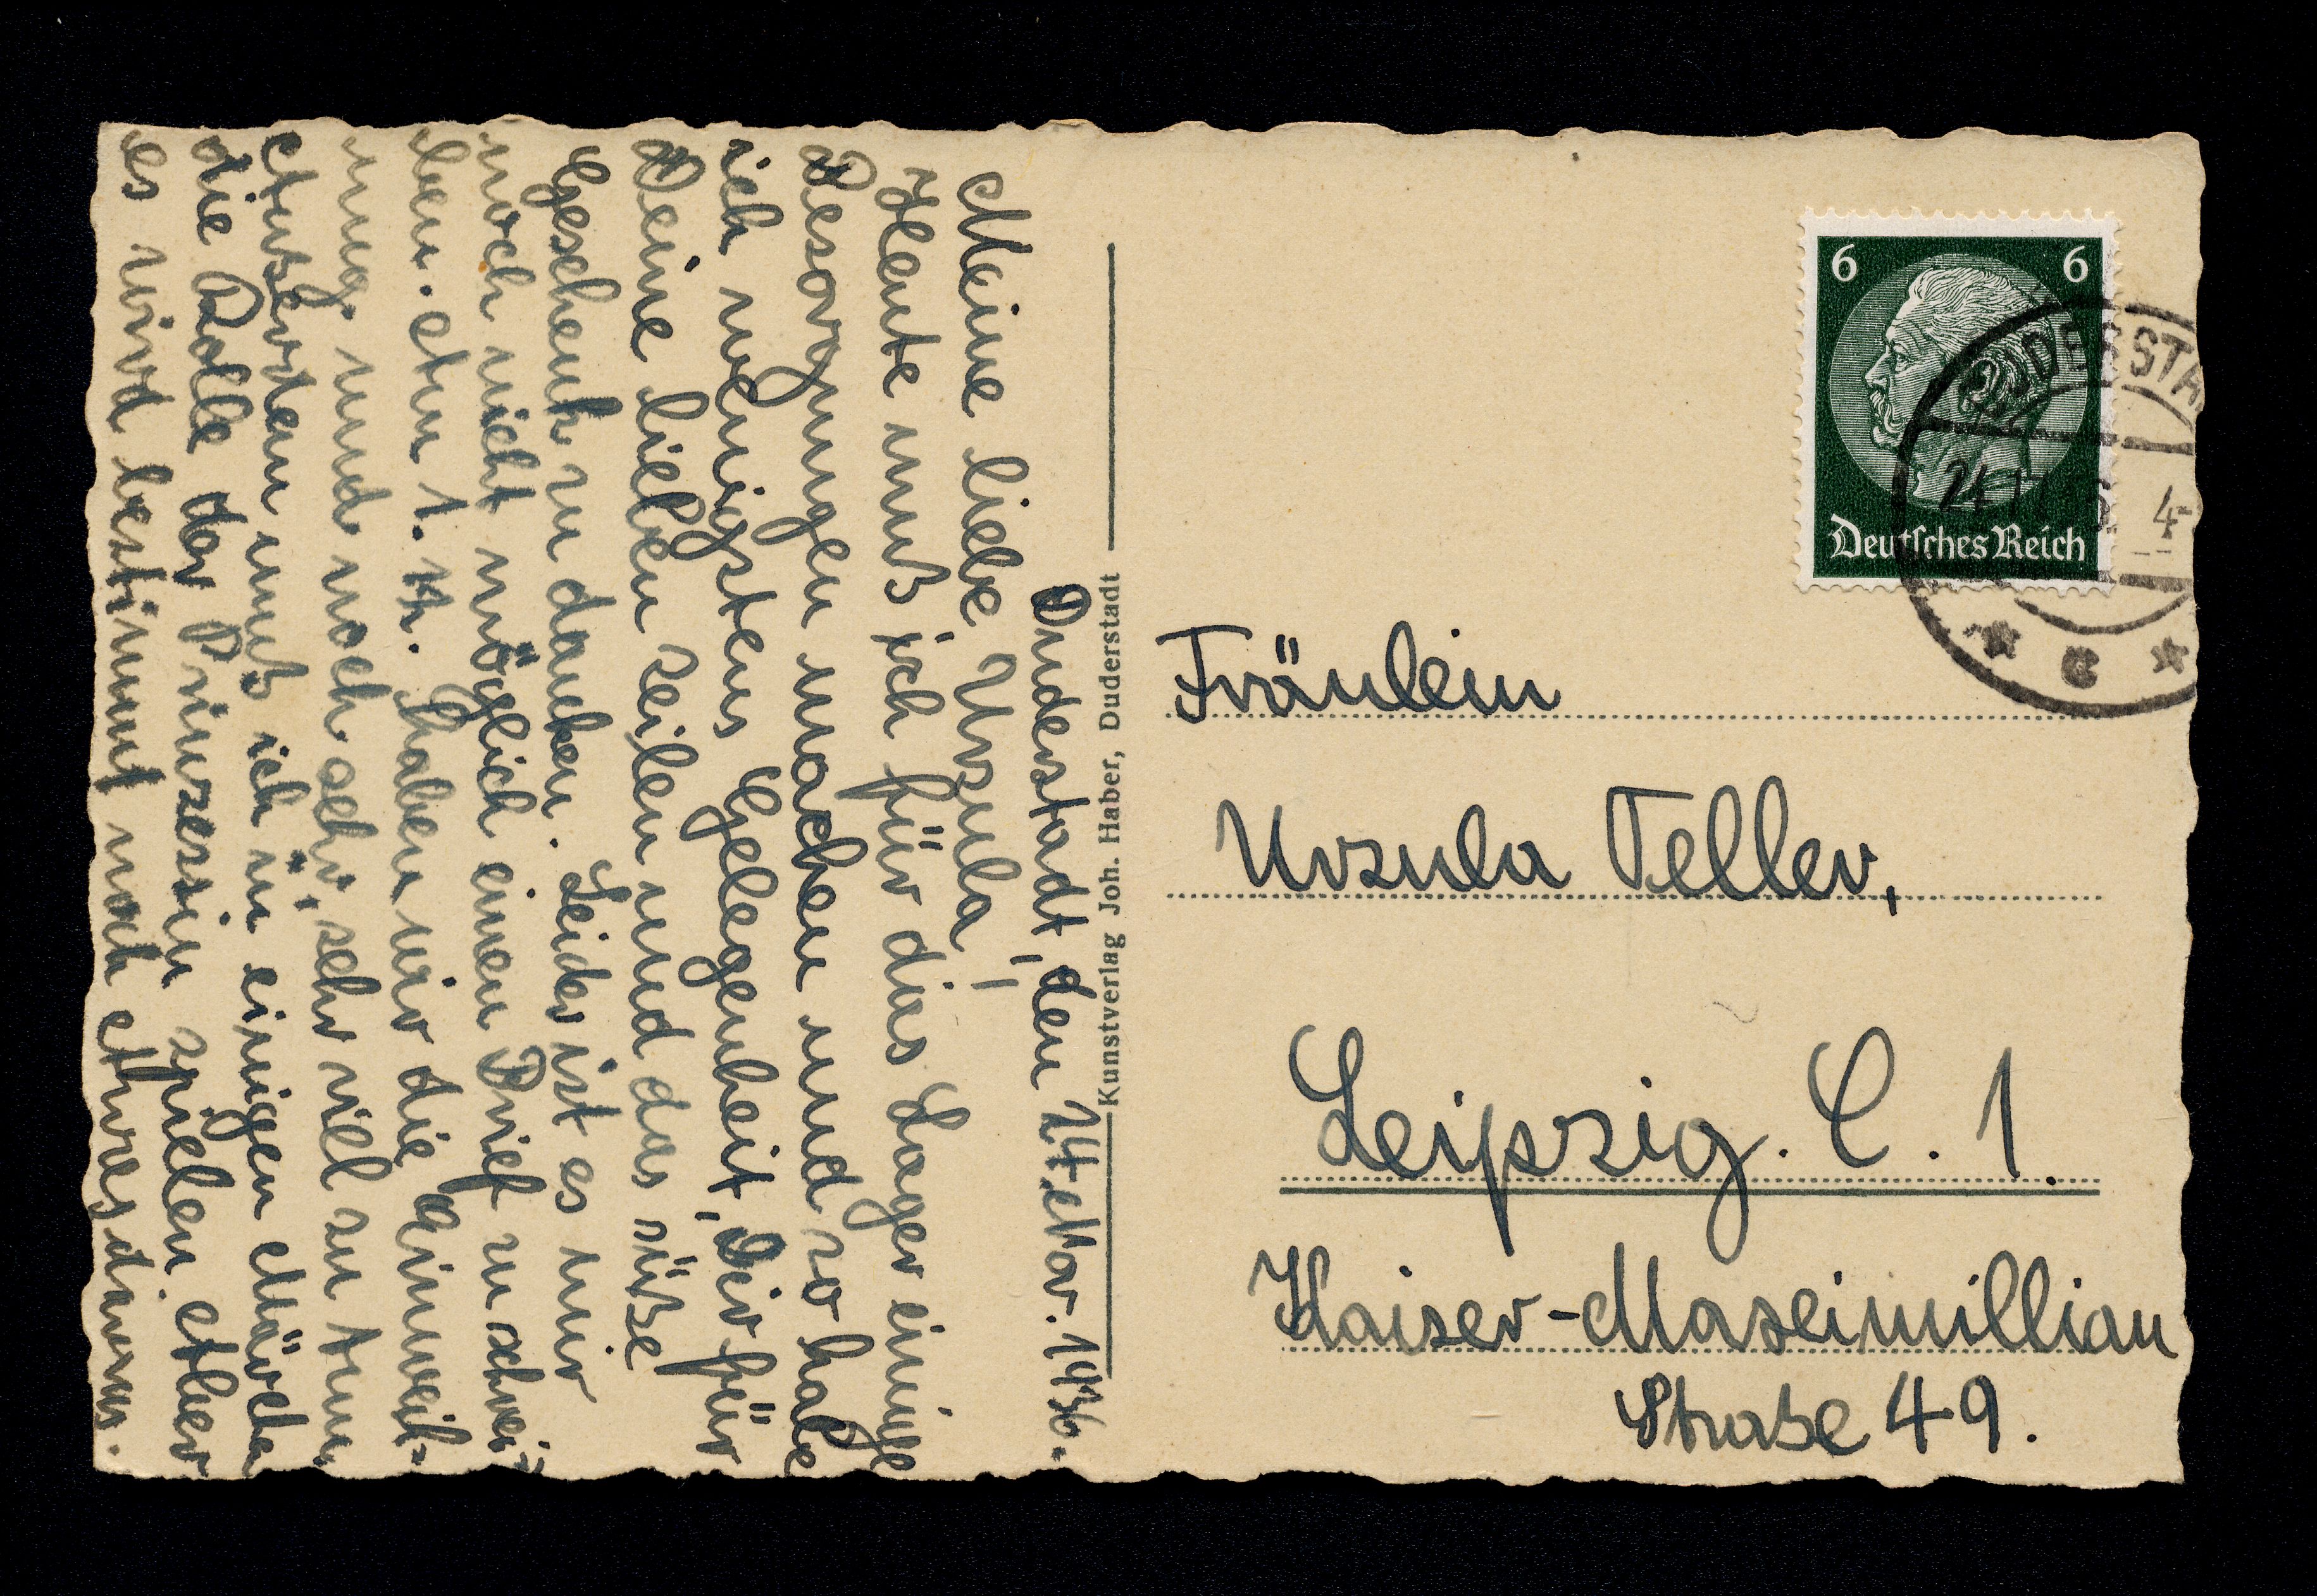 Duderstadt, den 24. Nov. 1936.
Meine liebe Ursula!
Heute muß ich für das Lager einige
Besorgungen machen und so habe
ich wenigstens Gelegenheit, Dir für
Deine lieben Zeilen und das süße
Geschenk zu danken. Leider ist es mir
noch nicht möglich einen Brief zu schrei-
ben. Am 1. XII. haben wir die Einweih-
ung und noch sehr, sehr viel zu tun.
Außerdem muß ich in einigen Märchen
die Rolle der Prinzessin spielen. Aber
es wird bestimmt noch etwas draus.
Kunstverlag Joh. Haber, Duderstadt
6 6
Deutsches Reich
Fräulein
Ursula Teller,
Leipzig. C. 1.
Kaiser-Maxeimillian
Straße 49.